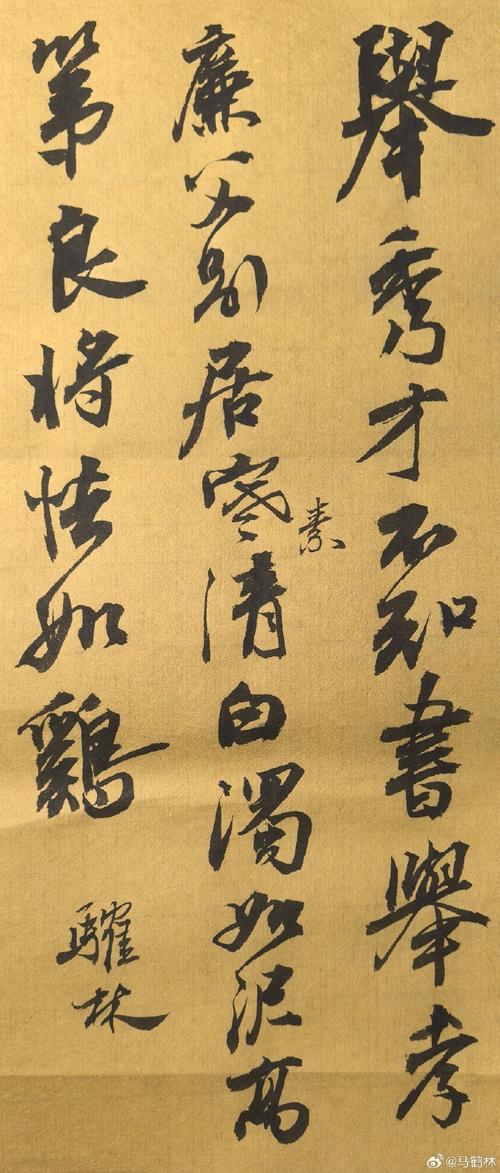 舉秀才不知書舉孝
廉父別居寒清白濁如泥高
素
第良將怯如鷄
林
@马鹤林